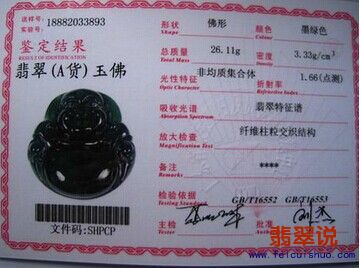 送样号: 18882033893
实验号:
鉴定结果
RESULT OF IDENTIFICATION
翡翠(A货)玉佛
条码: SHPCP
形状 佛形 颜色 墨绿色
Shape Color
总质量 26.11g 密度 3.33g/cm³
Total Mass Density
光性特征 非均质集合体 折射率 1.66(点测)
Optic Character Refractive Index
吸收光谱 翡翠特征谱
Absorption Spectrum
放大检查 纤维柱粒交织结构
Magnification Test
备注 ****
Remarks
检验依据 GB/T16552 GB/T16553
Testing Standard
主检 审核
翡翠说
www.feicuishuo.com